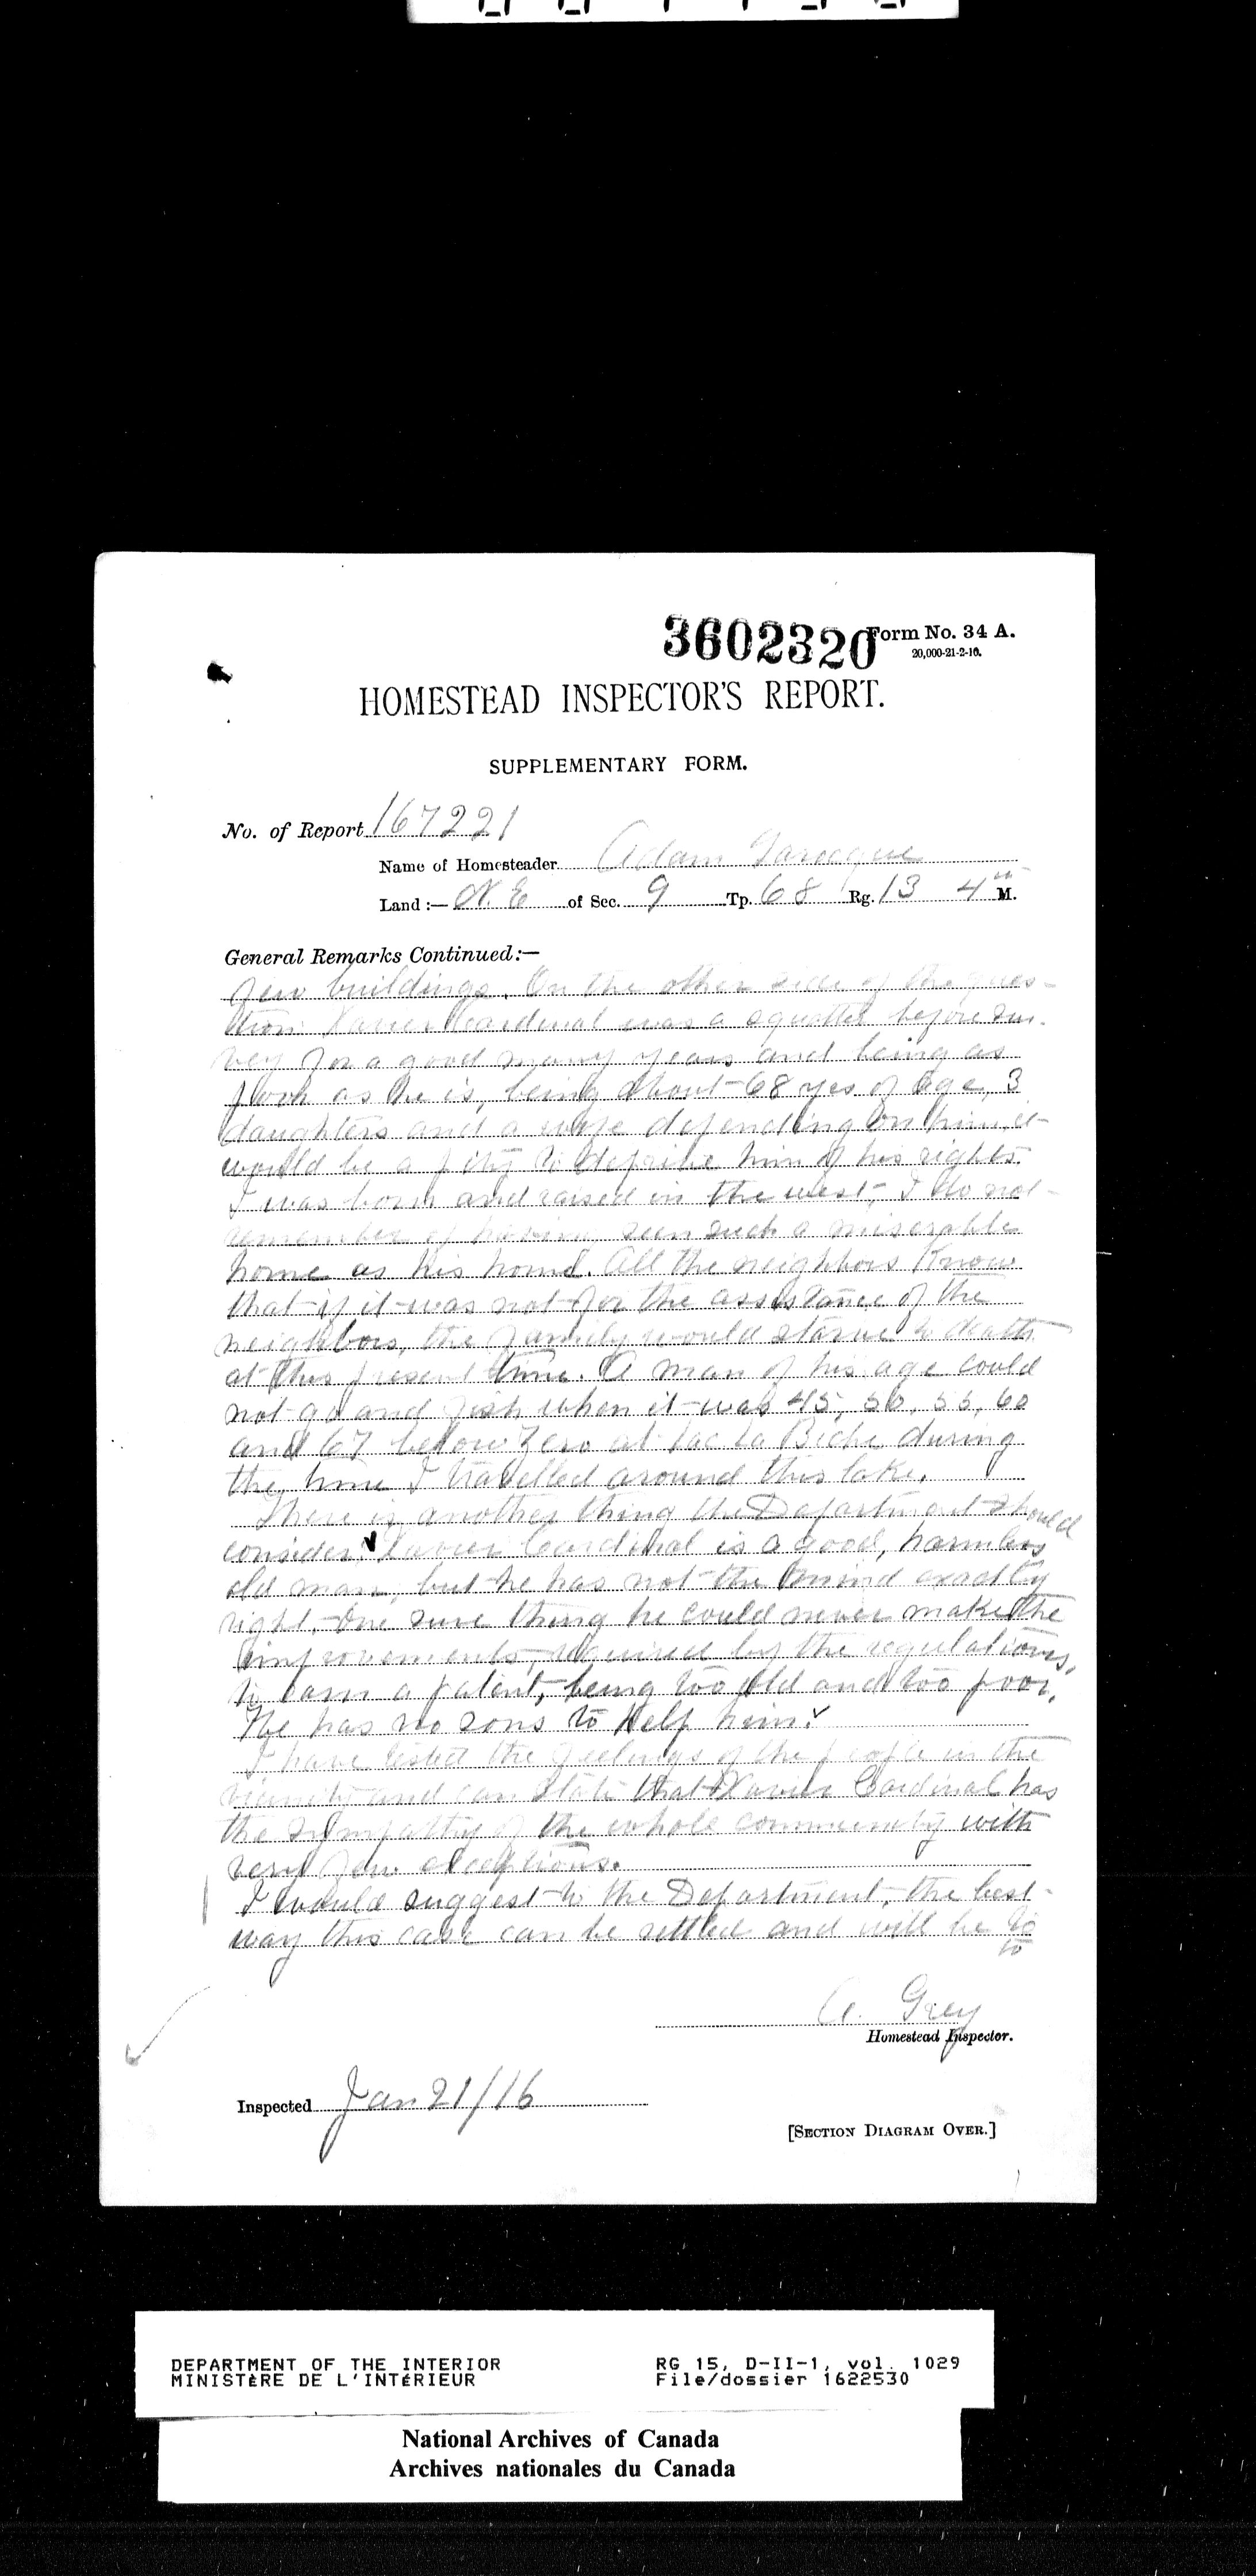 3602320 Form No. 34 A.
20,000-21-2-10.
HOMESTEAD INSPECTOR'S REPORT.
SUPPLEMENTARY FORM.
No. of Report 167221
Name of Homesteader Adam Larocque
Land :— N.E of Sec. 9 Tp. 68 Rg. 13 4th M.
General Remarks Continued:—
few buildings. On the other side of the ques-
tion Xavier Cardinal was a squatter before sur-
vey for a good many years and being as
poor as he is, being about 68 yrs of age, 3
daughters and a wife depending on him, it
would be a pity to deprive him of his rights.
I was born and raised in the west, I do not
remember of having seen such a miserable
home as his home. All the neighbors know
that if it was not for the assistance of the
neighbors, the family would starve to death
at this present time. A man of his age could
not go and fish when it was 45, 50, 55, 60
and 67 below zero at Lac La Biche during
the time I travelled around this lake.
There is another thing the Department should
consider, Xavier Cardinal is a good, harmless
old man, but he has not the mind exactly
right. One sure thing he could never make the
improvements, required by the regulations,
to earn a patent, being too old and too poor.
He has no sons to help him.
I have tested the feelings of the people in the
vicinity and can state that Xavier Cardinal has
the sympathy of the whole community with
very few exceptions.
I would suggest to the Department, the best
way this case can be settled and will be to
to
A. Grey
Homestead Inspector.
Inspected Jan 21/16
[SECTION DIAGRAM OVER.]
DEPARTMENT OF THE INTERIOR RG 15, D-II-1, vol. 1029
MINISTÈRE DE L'INTÉRIEUR File/dossier 1622530
National Archives of Canada
Archives nationales du Canada